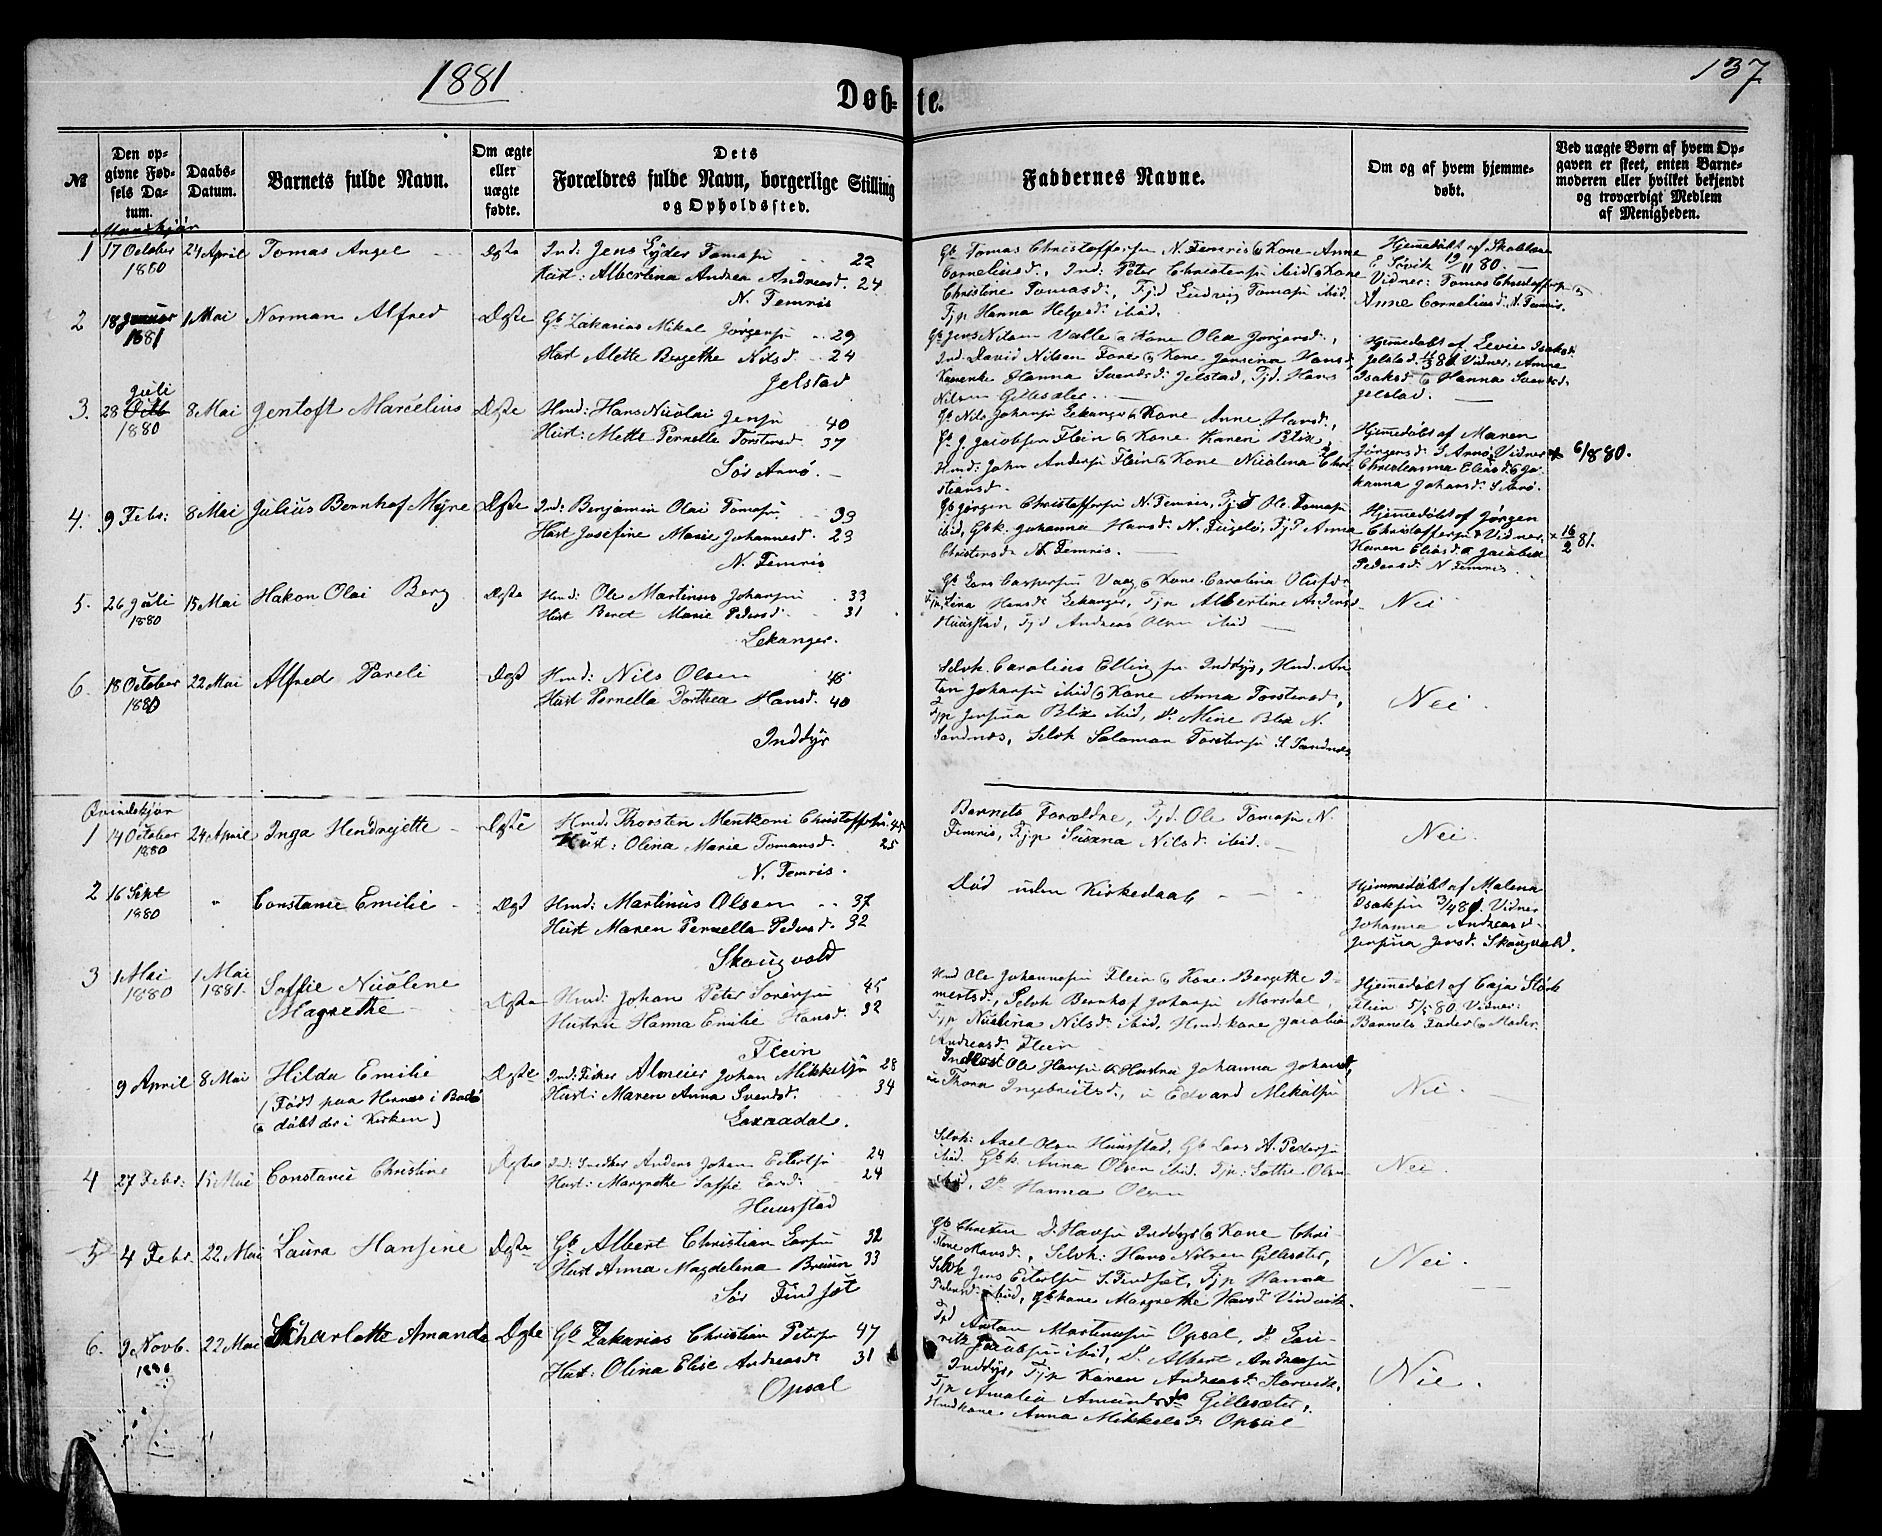 1881
Døb-te.
137
№
Den op-
givne Fød-
sels Da-
tum.
Daabs-
Datum.
Barnets fulde Navn.
Om ægte
eller
uægte
fødte.
Dets
Forældres fulde Navn, borgerlige Stilling
og Opholdssted.
Faddernes Navne.
Om og af hvem hjemme-
døbt.
Ved uægte Børn af hvem Op-
gaven er skeet, enten Barne-
moderen eller hvilket bekjendt
og troværdigt Medlem
af Menigheden.
Mandkjøn
1 17 October 1880 24 April Tomas Angel Ægte
Ind: Jens Eyder Tomasen 22
Hust: Albertina Andrea Andreasd. 24
N. Femris
Gb Tomas Christoffersen N. Femris & Kone Anne
Corneliusd., Ind: Peter Christensen ibid & Kone
Christine Tomasd., Tjd Ludvig Tomasen ibid.
Tjp Hanna Helgesd. ibid.
Hjemedøbt af
E Sørvik 19/11 80.
Vidner: Tomas Christoffersen &
Anne Corneliusd. N. Femris.
2 18 Januar 1881 1 Mai Norman Alfred Ægte
Gb Zakarias Mikal Jørgensen 29
Hust Alette Bergethe Nilsd. 24
Jelstad
Gb Jens Nilsen Valle & Kone Olea Jørgensd.,
Ind: David Nilsen Fore & Kone Jensina Hansd.
Hanna Svendsd. Jelstad, Tjd. Hans
Nilsen Gillesæter.
Hjemedøbt af Levie Isaksd.
Jelstad. Vidner: Anne
Isaksd. & Hanna Svendsd.
Jelstad.
3. 28 Juli 1880 8 Mai Jentoft Marselius Ægte
Hmd: Hans Nicolai Jensen 40
Hust: Mette Pernelle Torstensd. 37
Sør Arnø.
Gb Nils Johansen Lekanger & Kone Anne Hansd.,
Gb. J. Jacobsen Flein & Kone Karen Blix,
Hmd: John Andersen Flein & Kone Nicolina Chri-
stiansd.
Hjemedøbt af Maren
Jørgensd. S Arnø. Vidner
Christianna Eliasd. & Jo-
hanna Johansd. S Arnø.
6/8 80.
4. 9 Febr: 8 Mai Julius Bernhof Myre Ægte
Ind: Benjamin Olai Tomasen 33
Hust Josefine Marie Johannesd. 23
N. Femris
Gb Jørgen Christoffersen N. Femris, Tjd Ole Tomasen
ibid, Gbk. Johanna Hansd. N. Fugelø, Tjp Anna
Christensd. N. Femris.
Hjemedøbt af Jørgen
Christoffersen Vidner,
Karen Eliasd. & Jacobine
Pedersd. N Femris.
16/2 81.
5. 26 Juli 1880 15 Mai Hakon Olai Berg Ægte
Hmd: Ole Martinus Johansen 33
Hust Beret Marie Pedersd. 31
Lekanger.
Gb Lars Caspersen Vaag & Kone Carolina
Tjp. Lina Hansd. Lekanger, Tjp Albertine Andersd.
Huusstad, Tjd Andreas Olsen ibid
Nei
6. 18 October 1880 22 Mai Alfred Pareli Ægte
Hmd: Nils Olsen 48
Hust Pernella Dorthea Hansd. 40
Inddyr
Selvk. Carolius Ellingsen Inddyr, Hmd. An-
ton Johansen ibid & Kone Anna Torstensd.,
Tjp Jensina Blix ibid, Do Mine Blix N.
Sandnæs, Selvk Salomon Torstensen S Sandnæs
Nei.
Qvindekjøn
1 14 October 1880 24 April Inga Hendrijette Ægte
Hmd: Thorsten Mentkoni Christoffersen 45
Hust: Olina Marie Tomasd. 25
N. Femris.
Barnets Forældre, Tjd. Ole Tomasen N.
Femris, Tjp Susana Nilsd. ibid.
Nei.
2 16 Sept 1880 " Constance Emilie Ægt
Hmd: Martinus Olsen 37
Hust Maren Pernella Pedersd. 32
Skaugvold
Død uden Kirkedaab
Hjemmedøbt af Malena
Isaksen Vidner
Johanna Andreasd.
Jensina Jensd. Skaugvold.
3 1 Mai 1880 1 Mai 1881. Saffie Nicoline Magrethe Ægte
Hmd: Johan Peter Sørensen 45
Hustru Hanna Emilie Hansd. 32
Flein
Hmd Ole Johannesen Flein & Kone Bergethe I-
mertsd., Selvk Bernhof Johansen Morsdal,
Tjp Nicolina Nilsd. ibid, Hmdkone Jacobia
Andreasd. Flein
Hjemmedøbt af Caja Størk
Flein 5/5 80. Vidner:
Barnets Fader & Moder.
9 April 8 Mai Hilda Emilie Ægte
(Født paa Hernes i Bodø
& døbt der i Kirken)
Ind: Fisker Almeier Johan Mikkelsen 28
Hust: Maren Anna Svendsd. 34
Laxaadal.
Indhost Ole Hansen & Hustru Johanna Johansd.,
Thora Ingebritsd., Edvard Mikalsen
Nei.
4 27 Febr: 15 Mai Constance Christine Ægte
Ind: Snedker Anders Johan Eilertsen 24
Hust: Margrethe Saffie Larsd. 24
Huusstad
Selvk: Axel Olsen Huusstad, Gb Lars A. Pedersen
ibid. Gbk. Anna Olsen ibid. Tjp: Lotte Olsen
ibid, Do Hanna Olsen
Nei.
5 4 Febr. 22 Mai Laura Hansine Ægte
Gb Albert Christian Larsen 32
Hust Anna Magdelena Bruun 33
Sør Findset
Gb Christen D. Havsen Inddyr & Kone Chri-
stine Hansd., Selvk: Hans Nilsen Gillesæter,
Selvk Jens Eilertsen S. Findset, Tjp Hanna
Pedersd. ibid, Gbkone Margrethe Hansd. Vindvik.
Nei.
6. 9 Novb. 1880 22 Mai Scharlotte Amanda Ægte
Gb Zakarias Christian Petersen 47
Hust: Olina Elise Andreasd. 31
Opsal
Tjd Anton Martinusen Opsal, Do Lau-
ritz Jacobsen ibid, Do Albert Andreasen
Inddyr, Tjp Karen Andreasd. Storvik,
Tjp Amalia Amundsd. Gillesæter,
Hmdkone Anna Mikkelsd. Opsal
Nie.